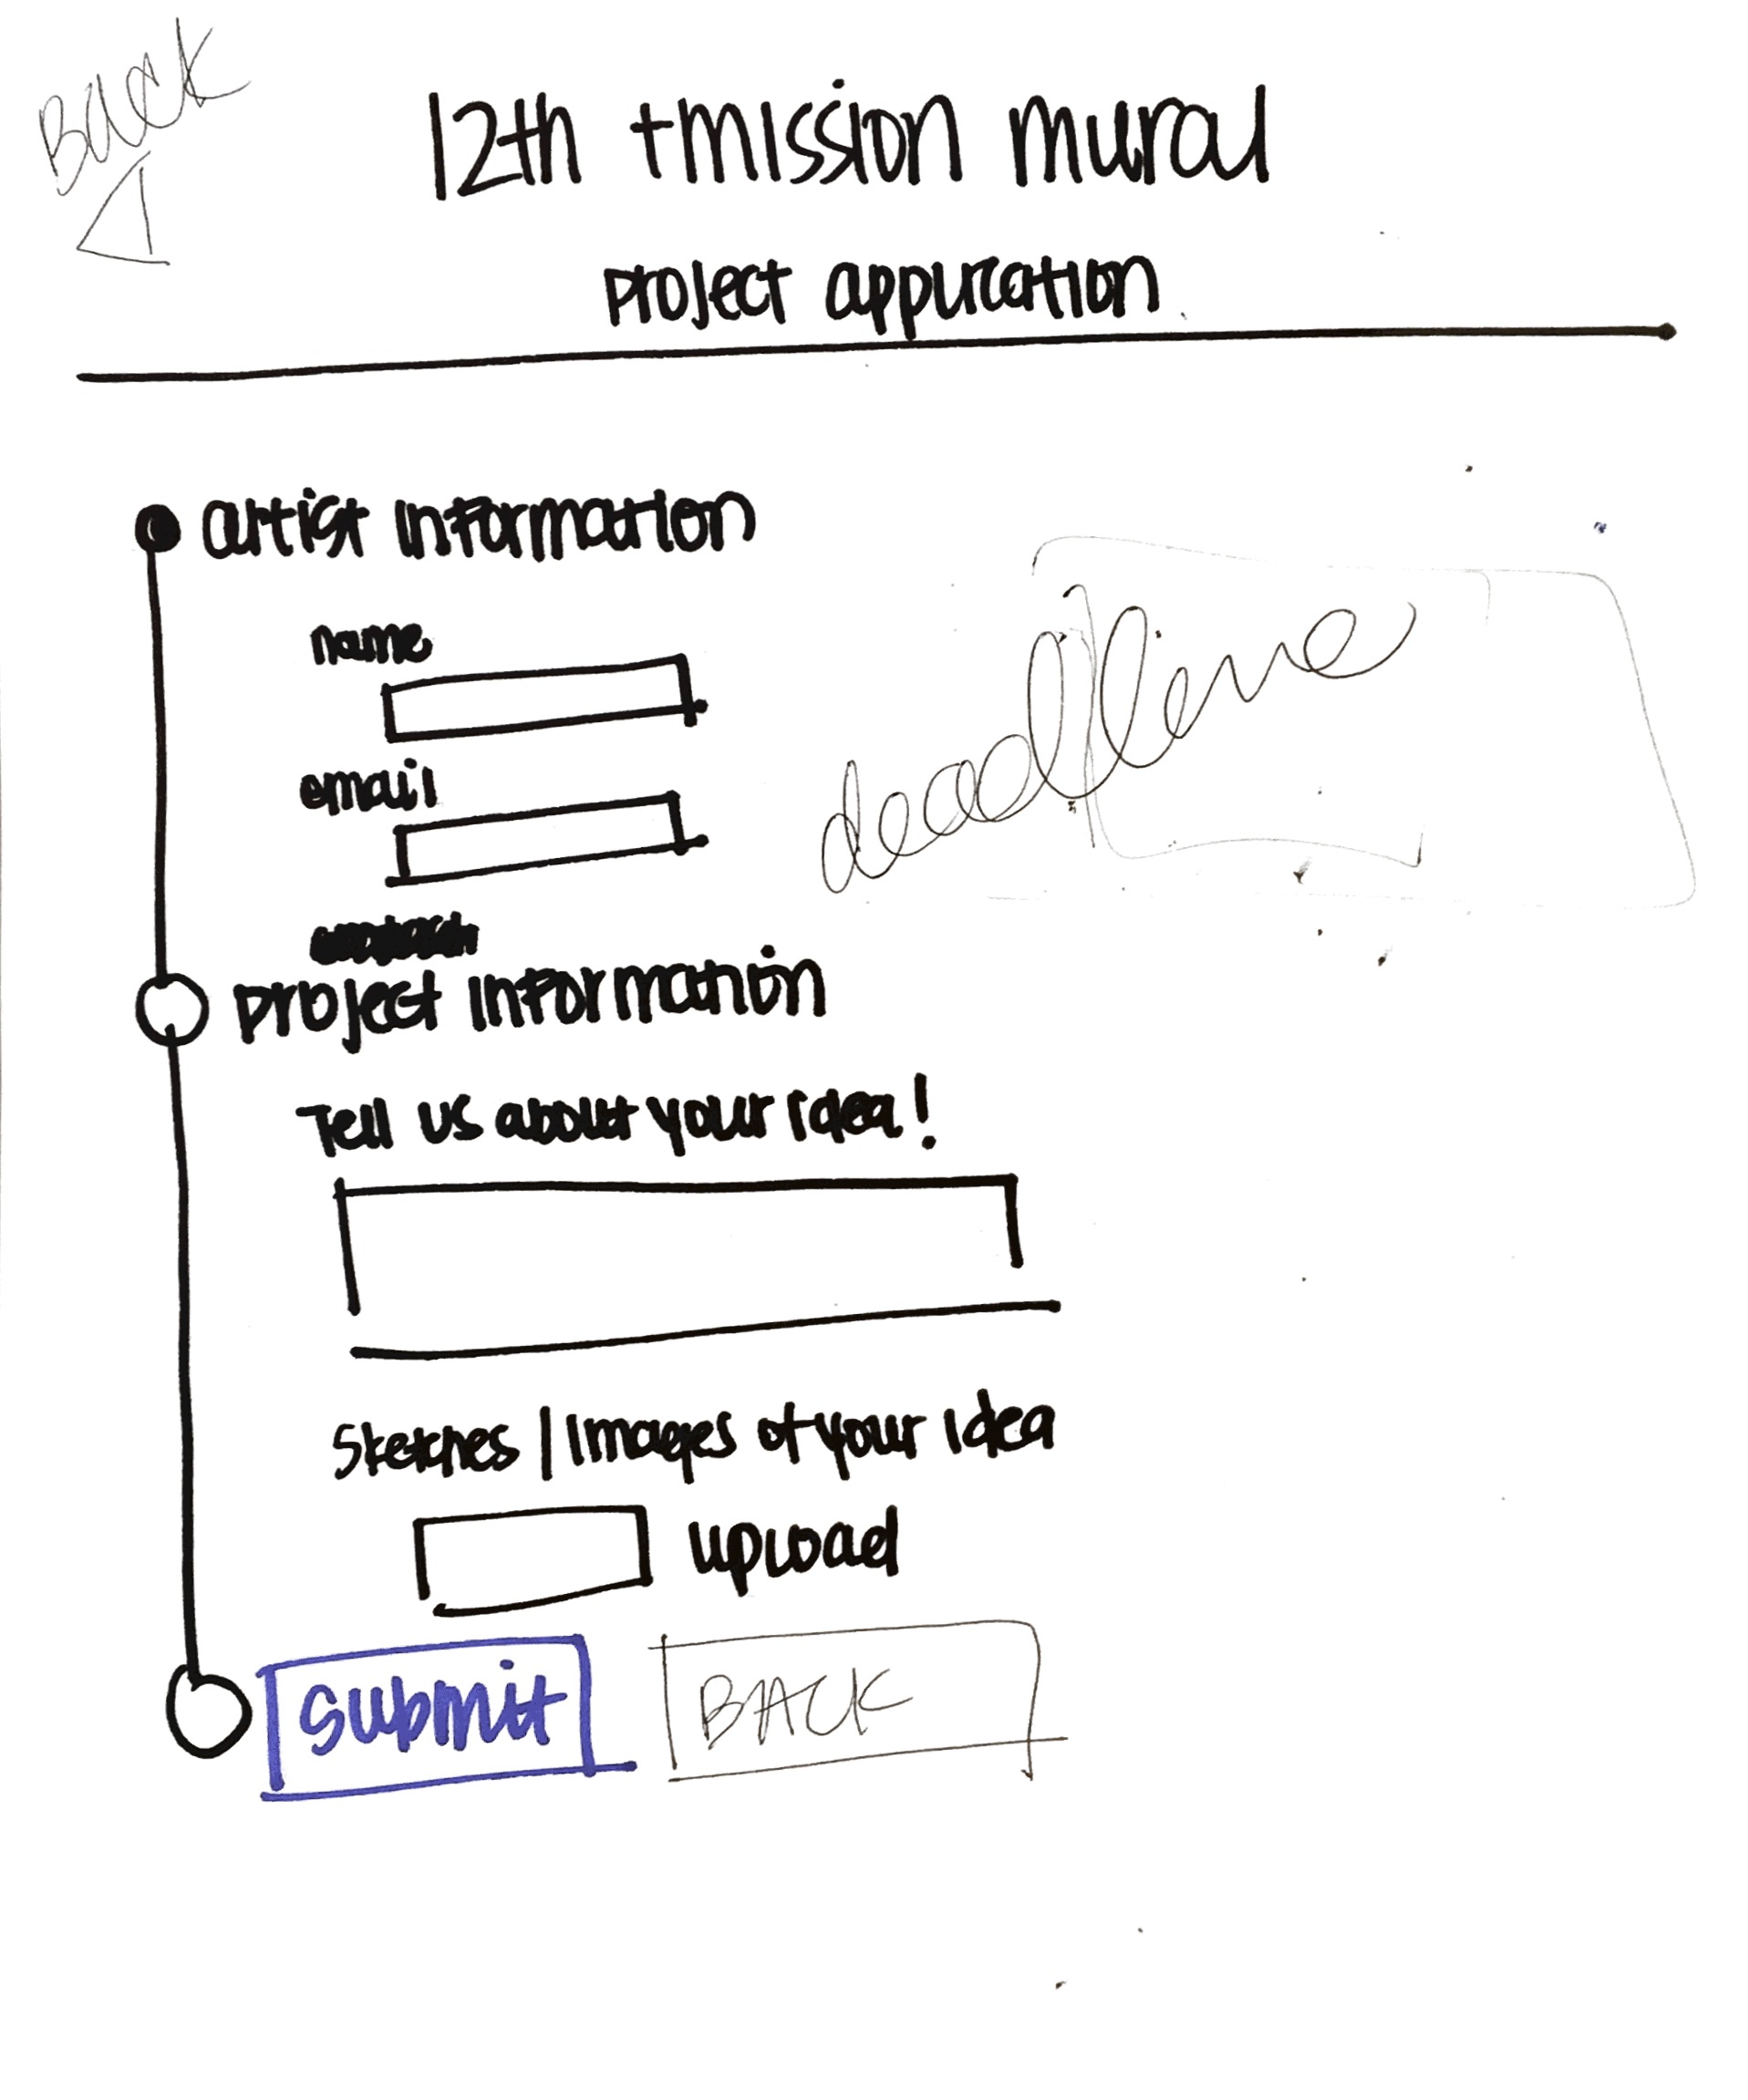 Back
12th + mission mural
project application
artist information
name
deadline
email
project information
Tell us about your idea!
Sketches / Images of your idea
upload
submit
BACK